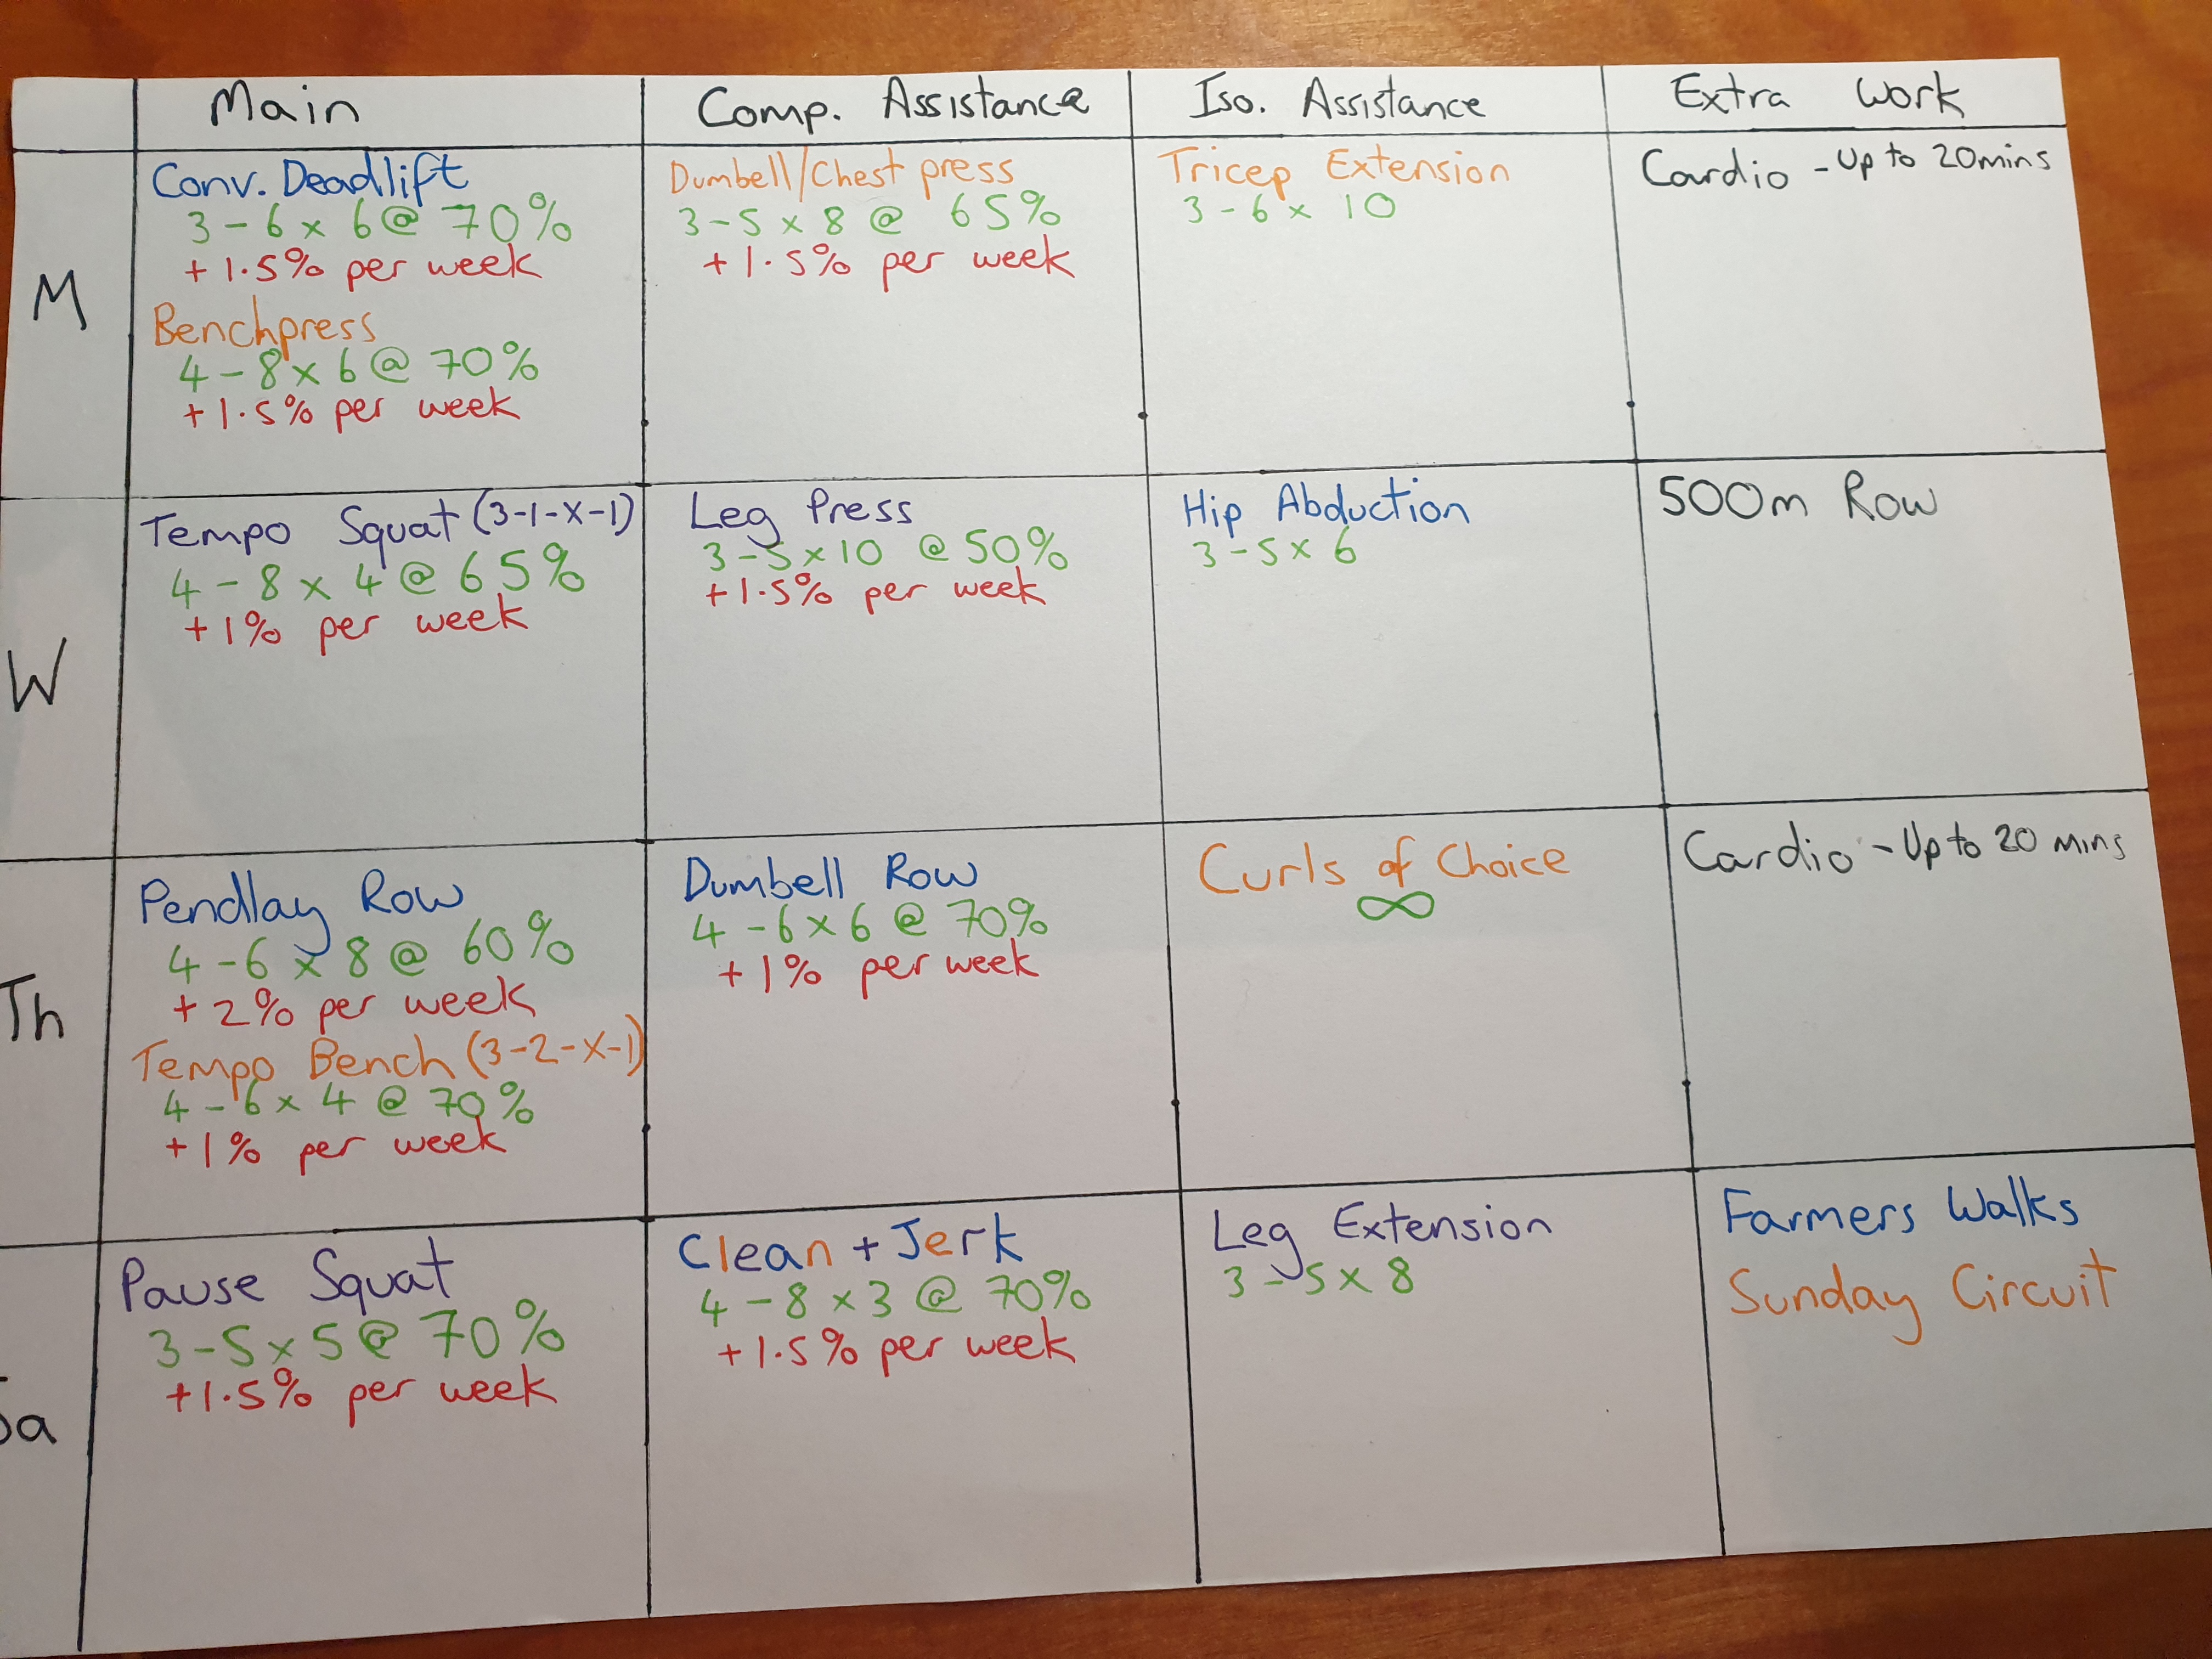 Main
Comp. Assistance
Iso. Assistance
Extra Work
M
Conv. Deadlift
3-6 x 6 @ 70%
+1.5% per week
Benchpress
4-8 x 6 @ 70%
+1.5% per week
Dumbell/Chest press
3-5 x 8 @ 65%
+1.5% per week
Tricep Extension
3-6 x 10
Cardio - Up to 20mins
W
Tempo Squat (3-1-X-1)
4-8 x 4 @ 65%
+1% per week
Leg Press
3-5 x 10 @ 50%
+1.5% per week
Hip Abduction
3-5 x 6
500m Row
Th
Pendlay Row
4-6 x 8 @ 60%
+2% per week
Tempo Bench (3-2-X-1)
4-6 x 4 @ 70%
+1% per week
Dumbell Row
4-6 x 6 @ 70%
+1% per week
Curls of Choice
∞
Cardio - Up to 20 mins
Sa
Pause Squat
3-5 x 5 @ 70%
+1.5% per week
Clean + Jerk
4-8 x 3 @ 70%
+1.5% per week
Leg Extension
3-5 x 8
Farmers Walks
Sunday Circuit